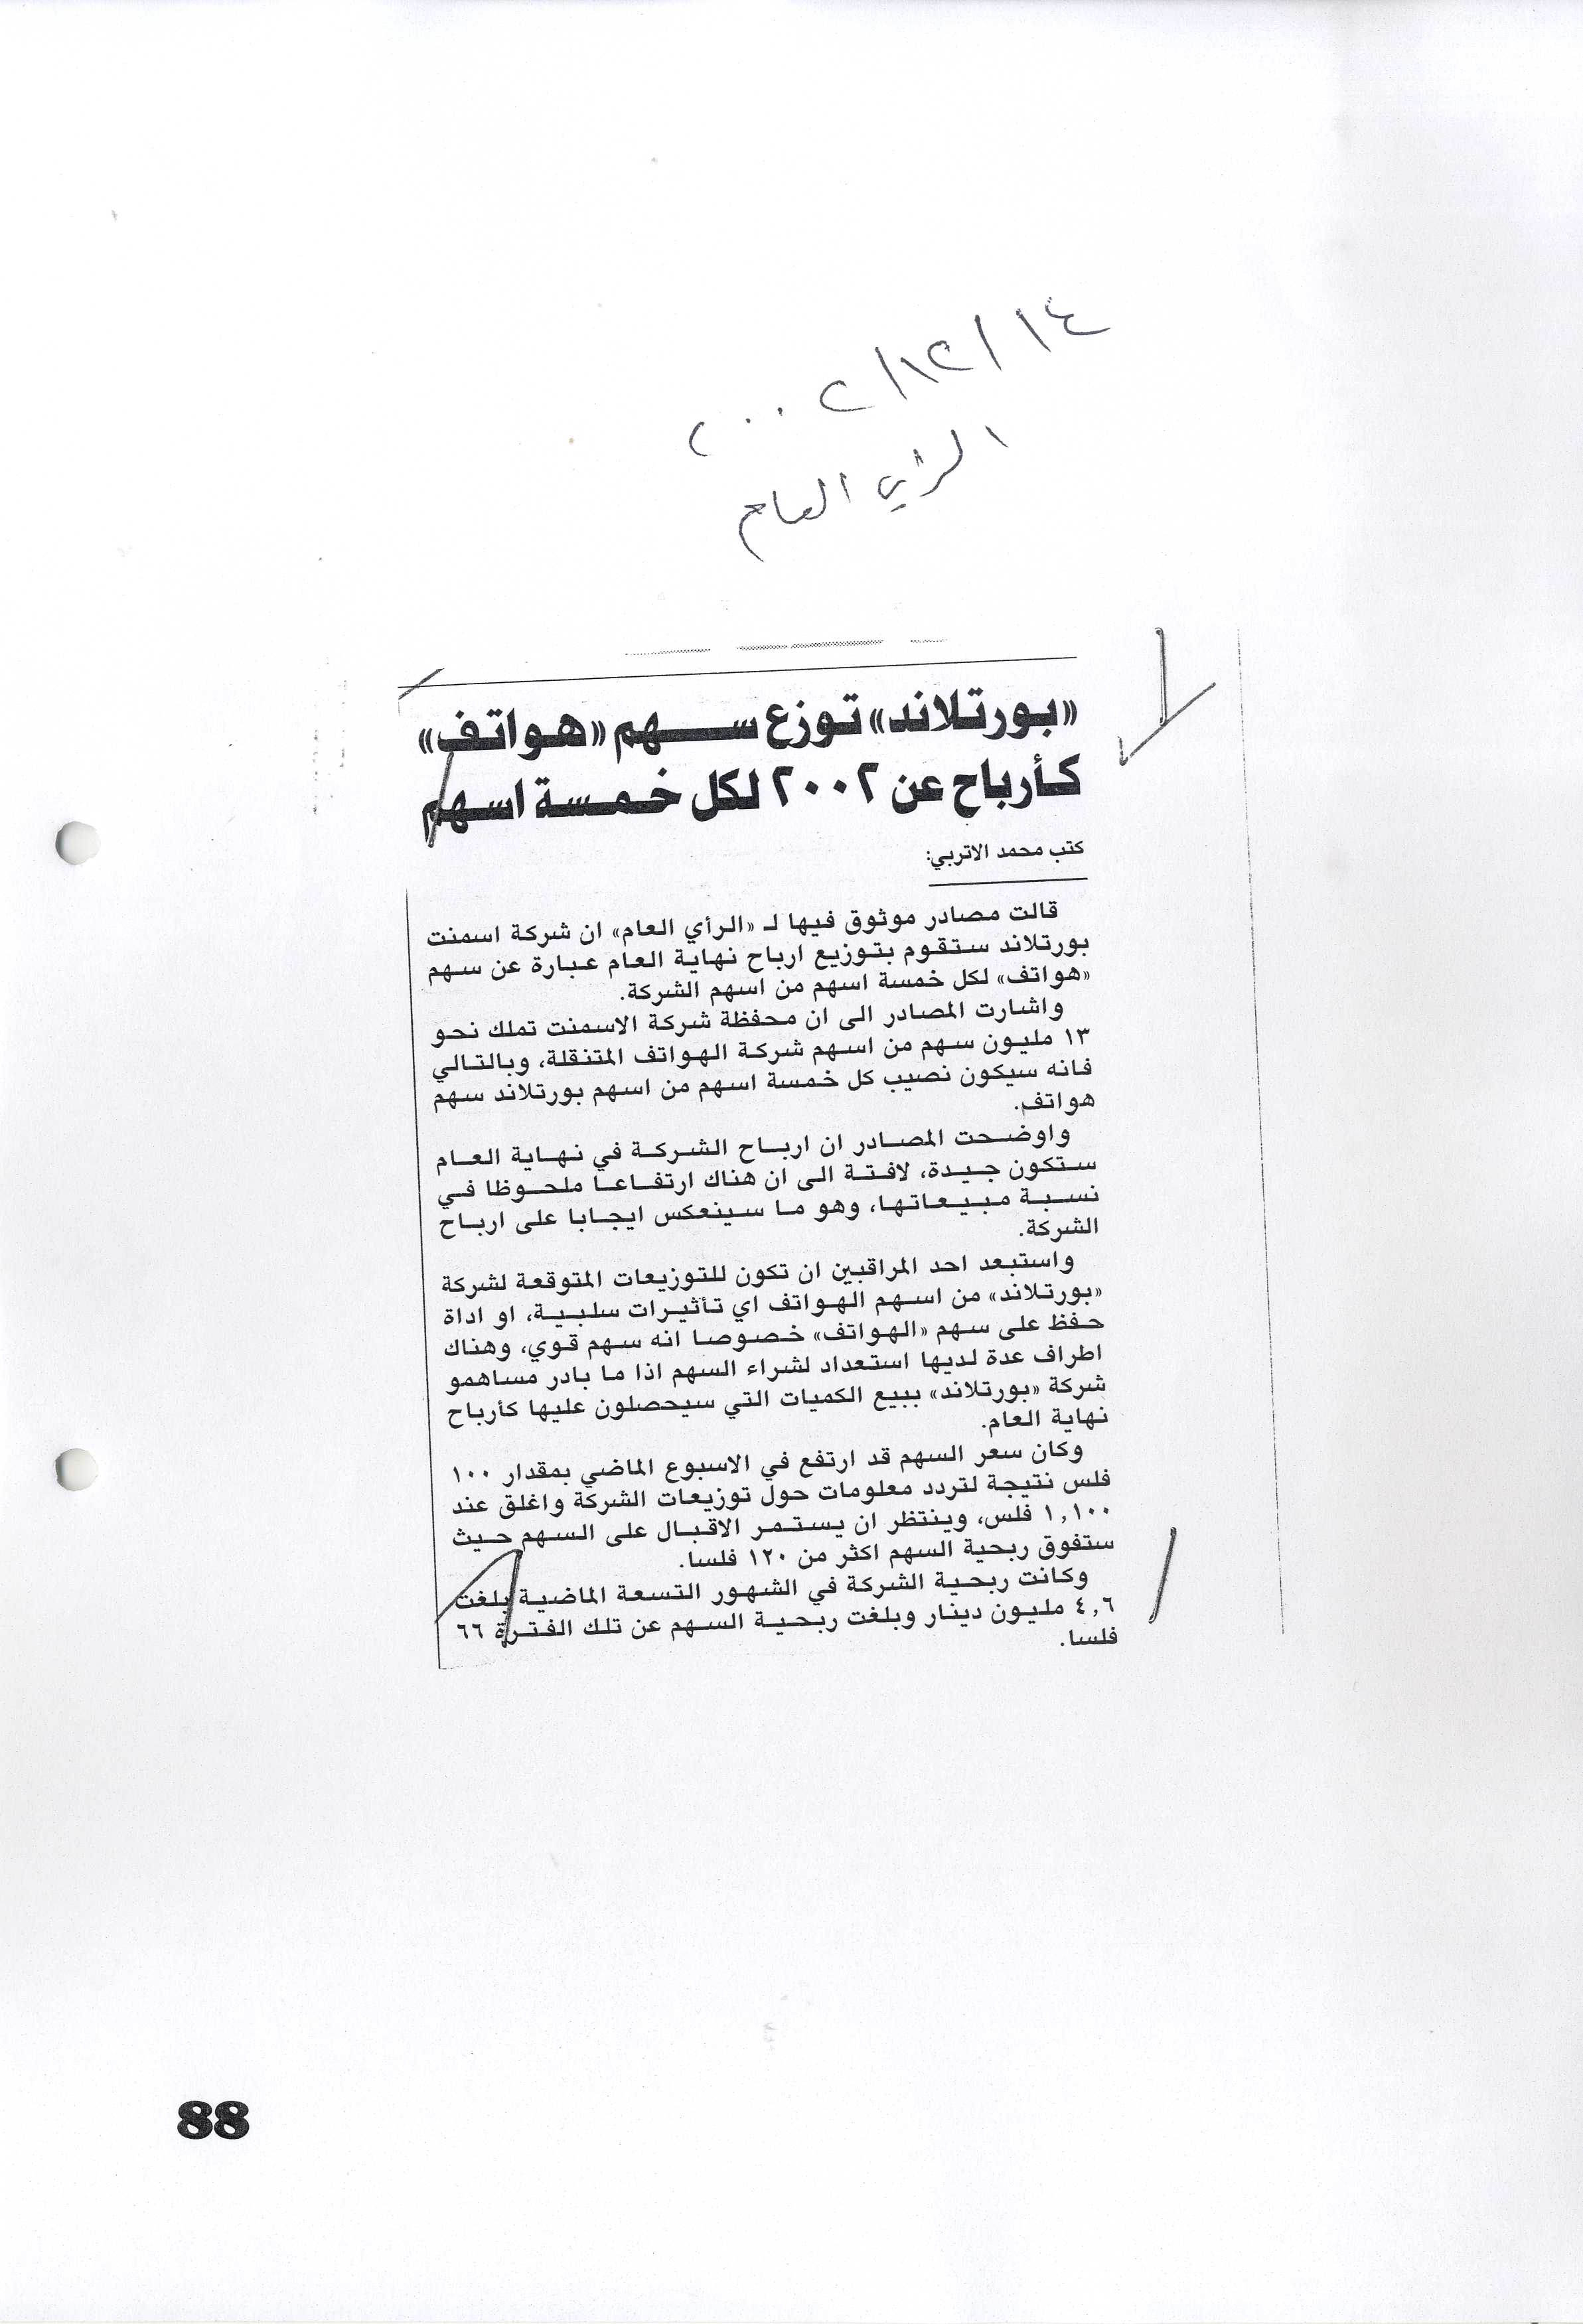 ٢٠٠٢/١٢/١٤
الرأي العام
«بورتلاند» توزع سهم «هواتف»
كأرباح عن ٢٠٠٢ لكل خمسة اسهم
كتب محمد الاتربي:
قالت مصادر موثوق فيها لـ «الرأي العام» ان شركة اسمنت
بورتلاند ستقوم بتوزيع ارباح نهاية العام عبارة عن سهم
«هواتف» لكل خمسة اسهم من اسهم الشركة.
واشارت المصادر الى ان محفظة شركة الاسمنت تملك نحو
١٣ مليون سهم من اسهم شركة الهواتف المتنقلة، وبالتالي
فانه سيكون نصيب كل خمسة اسهم من اسهم بورتلاند سهم
هواتف.
واوضحت المصادر ان ارباح الشركة في نهاية العام
ستكون جيدة، لافتة الى ان هناك ارتفاعا ملحوظا في
نسبة مبيعاتها، وهو ما سينعكس ايجابا على ارباح
الشركة.
واستبعد احد المراقبين ان تكون للتوزيعات المتوقعة لشركة
«بورتلاند» من اسهم الهواتف اي تأثيرات سلبية، او اداة
حفظ على سهم «الهواتف» خصوصا انه سهم قوي، وهناك
اطراف عدة لديها استعداد لشراء السهم اذا ما بادر مساهمو
شركة «بورتلاند» ببيع الكميات التي سيحصلون عليها كأرباح
نهاية العام.
وكان سعر السهم قد ارتفع في الاسبوع الماضي بمقدار ١٠٠
فلس نتيجة لتردد معلومات حول توزيعات الشركة واغلق عند
١,١٠٠ فلس، وينتظر ان يستمر الاقبال على السهم حيث
ستفوق ربحية السهم اكثر من ١٢٠ فلسا.
وكانت ربحية الشركة في الشهور التسعة الماضية بلغت
٤,٦ مليون دينار وبلغت ربحية السهم عن تلك الفترة ٦٦
فلسا.
88